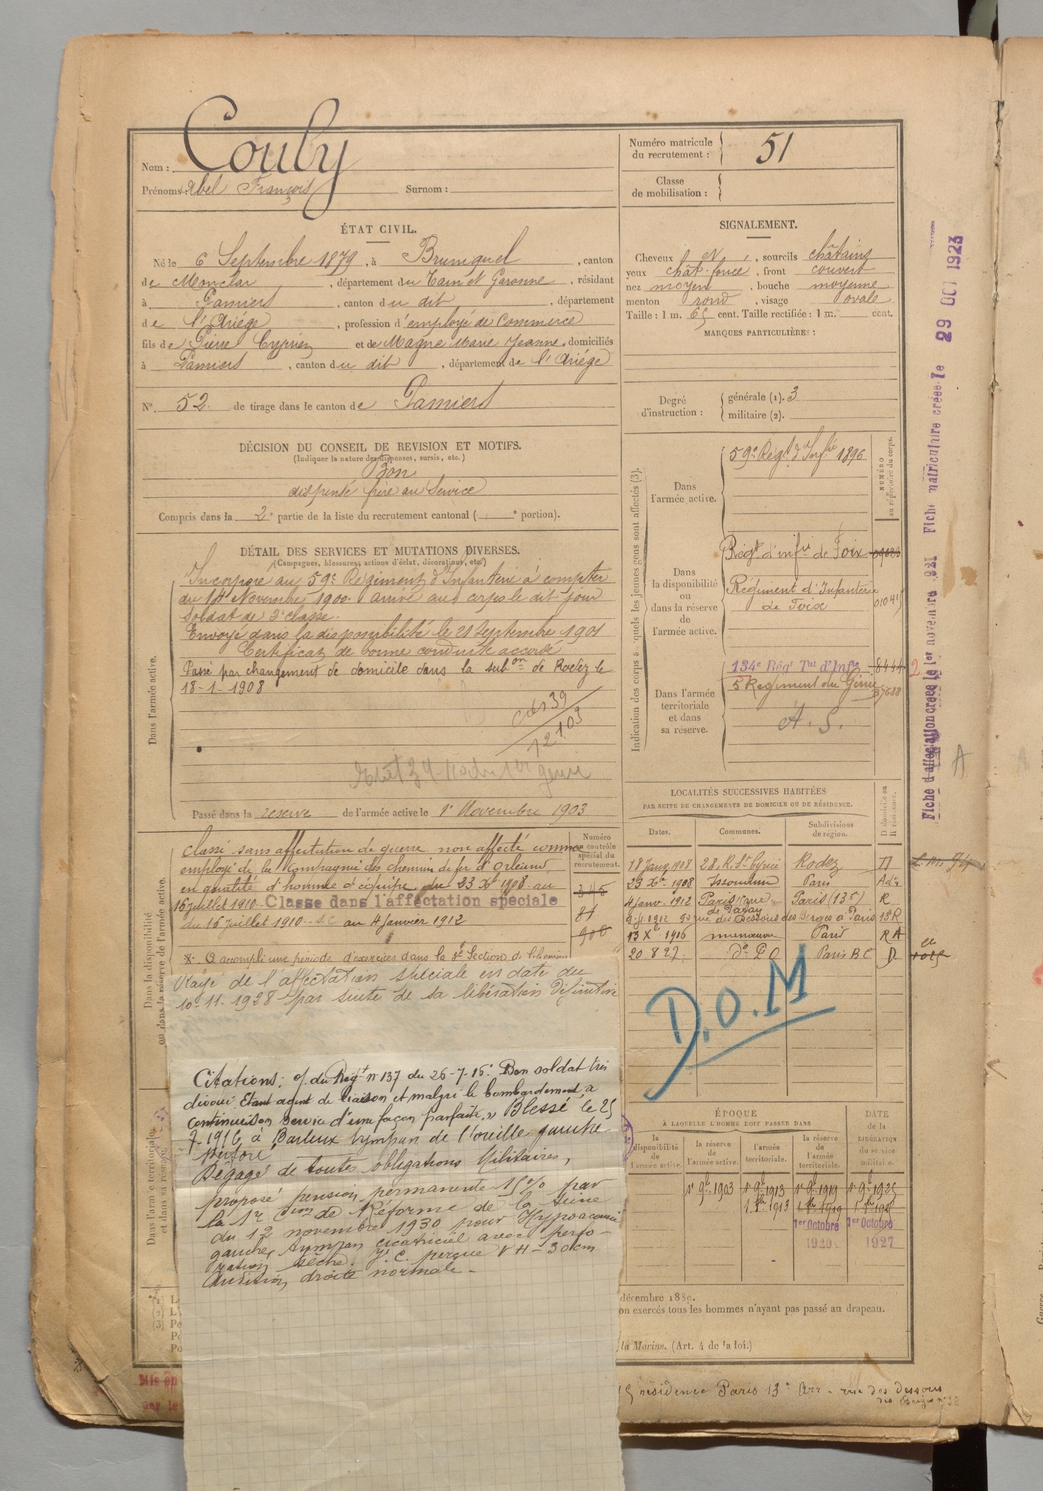 Nom : Couly
Prénoms : Abel François Surnom :
Numéro matricule du recrutement : 51
Classe de mobilisation :
ÉTAT CIVIL.
Né le 6 Septembre 1879, à Bruniquel, canton
de Monclar, département du Tarn et Garonne, résidant
à Pamiers, canton du dit, département
de l'Ariége, profession d'employé de Commerce
fils de Pierre Cyprien et de Magne Marie Jeanne, domiciliés
à Pamiers, canton du dit, département de l'Ariége
N° 52 de tirage dans le canton de Pamiers
SIGNALEMENT.
Cheveux et, sourcils châtains
yeux chât. foncé, front couvert
nez moyen, bouche moyenne
menton rond, visage ovale
Taille : 1 m. 65 cent. Taille rectifiée : 1 m. cent.
MARQUES PARTICULIÈRES :
Degré d'instruction : générale (1). 3
militaire (2).
DÉCISION DU CONSEIL DE REVISION ET MOTIFS.
(Indiquer la nature des dispenses, sursis, etc.)
Bon
dispensé frère au Service
Compris dans la 2e partie de la liste du recrutement cantonal ( e portion).
DÉTAIL DES SERVICES ET MUTATIONS DIVERSES.
(Campagnes, blessures, actions d'éclat, décorations, etc.)
Dans l'armée active.
Incorporé au 59e Régiment d'Infanterie à compter
du 1er Novembre 1900 arrivé au corps le dit jour
Soldat de 2e classe.
Envoyé dans la disponibilité le 21 Septembre 1901
Certificat de bonne conduite accordé
Passé par changement de domicile dans la subon de Rodez le
18-1-1908
Passé dans la réserve de l'armée active le 1er Novembre 1903
Indication des corps auxquels les jeunes gens sont affectés (3).
NUMÉRO au répertoire du corps.
Dans l'armée active.
59e Régt d'Infie 1896
Dans la disponibilité ou dans la réserve de l'armée active.
Régt d'infie de Foix
Régiment d'Infanterie de Foix 01041
Dans l'armée territoriale et dans sa réserve.
134e Rég Tal d'Infie 8444
5 Régiment du Génie
A. S.
Dans la disponibilité ou dans la réserve de l'armée active.
Classé sans affectation de guerre non affecté comme
employé de la Compagnie des chemin de fer d'Orléans
en qualité d'homme d'équipe du 23 Xbre 1908 au
16 juillet 1910 Classé dans l'affectation spéciale
du 16 juillet 1910 au 4 Janvier 1912
Numéro au contrôle spécial du recrutement.
81
908
A accompli une période d'exercices dans la
Rayé de l'affectation spéciale en date du
10.11.1928 par suite de sa libération définitive
LOCALITÉS SUCCESSIVES HABITÉES
PAR SUITE DE CHANGEMENTS DE DOMICILE OU DE RÉSIDENCE.
Dates. Communes. Subdivisions de région. D domicile ou R résidence.
18 Janv 1908 Rodez D
23 Xbre 1908 Issoudun Paris
4 Janv. 1912 Paris Paris (13e) R
rue des Dessous des Berges à Paris 13 R
13 Xbre 1916 Paris R
20.8.27. Do P O Paris B C D
D.O.M
Citations : O/ du Régt n° 137 du 26-7-16: Bon soldat très
dévoué. Etant agent de liaison et malgré le bombardement, a
continué son service d'une façon parfaite. Blessé le 25
7-1916 à Barleux tympan de l'oreille gauche
perforé
Dégagé de toutes obligations Militaires,
proposé pension permanente 15% par
la 1re Con de Réforme de la Seine
du 12 novembre 1930 pour Hypoacousie
gauche, tympan cicatriciel avec perfo-
ration sèche. V.C. perçue VH - 30cm
Audition droite normale.
ÉPOQUE
À LAQUELLE L'HOMME DOIT PASSER DANS
la disponibilité de l'armée active. la réserve de l'armée active. l'armée territoriale. la réserve de l'armée territoriale.
DATE de la LIBÉRATION du service militaire.
1er 9bre 1903 1er 9bre 1913 1er 9bre 1919 1er 9bre 1925
1er Octobre 1920 1er Octobre 1927
décembre 1889.
on exercés tous les hommes n'ayant pas passé au drapeau.
la Marine. (Art. 4 de la loi.)
résidence Paris 13e Arr. rue des dessous
des Berges
Fiche d'affectation créée le 1er novembre 1921 Fiche matriculaire créée le 29 OCT 1923